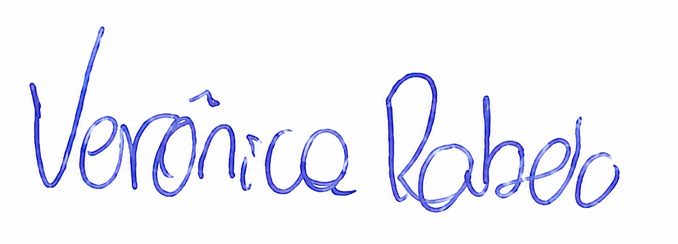 Verônica Rabelo